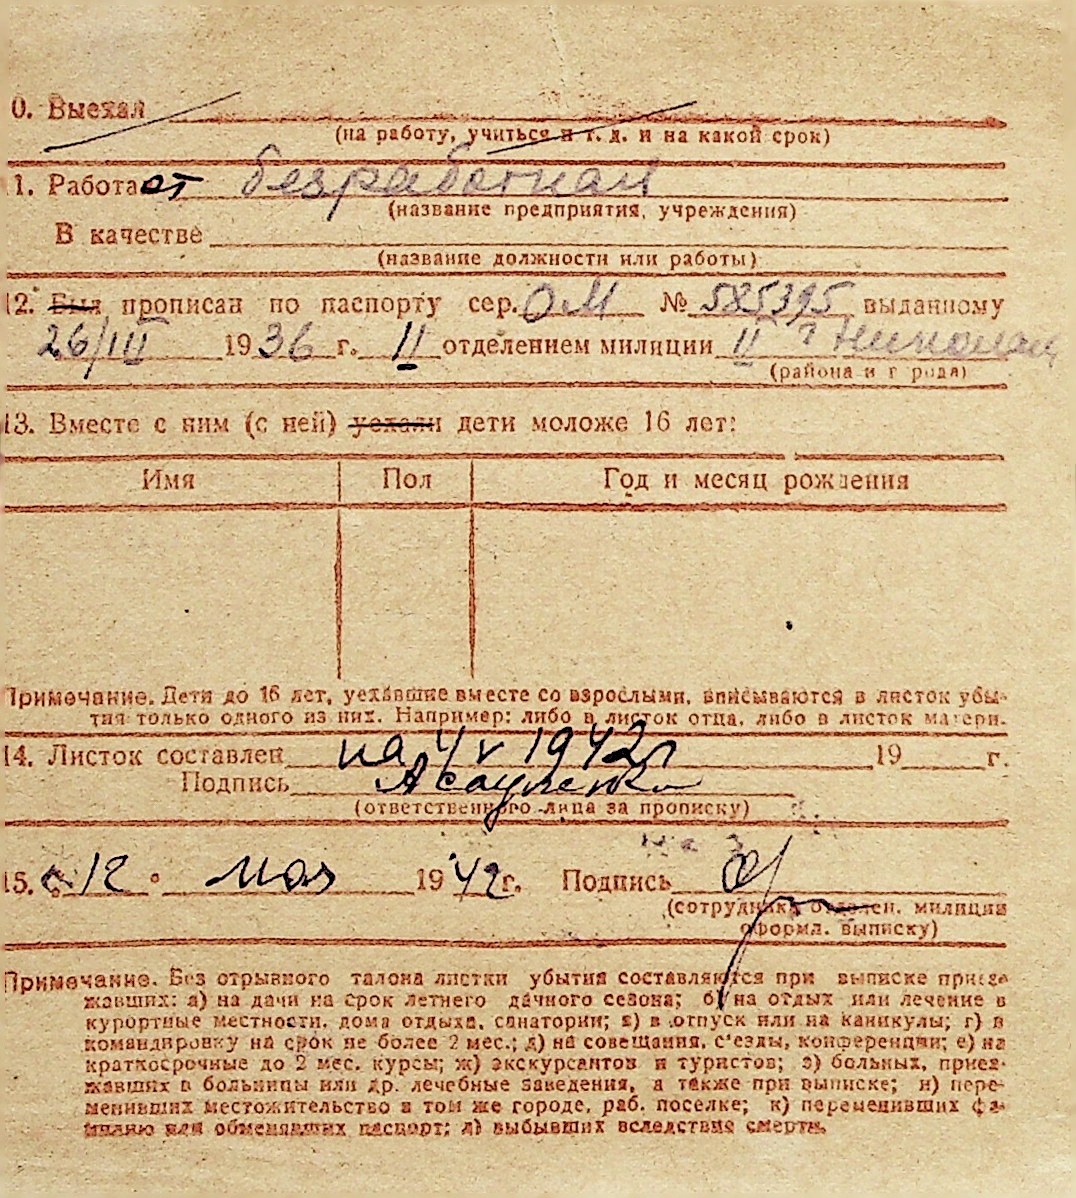 0. Выехал
(на работу, учиться и т. д. и на какой срок)
1. Работает безработная
(название предприятия, учреждения)
В качестве
(название должности или работы)
12. Был прописан по паспорту сер. ОМ № 585395 выданному
26/III 1936 г. II отделением милиции II г Николаев
(района и города)
13. Вместе с ним (с ней) уехали дети моложе 16 лет:
Имя Пол Год и месяц рождения
Примечание. Дети до 16 лет, уехавшие вместе со взрослыми, вписываются в листок убы-
тия только одного из них. Например: либо в листок отца, либо в листок матери.
14. Листок составлен на 4 V 1942 г 19 г.
Подпись
(ответственного лица за прописку)
15. 12 мая 1942 г. Подпись
(сотрудника отделен. милиции
оформл. выписку)
Примечание. Без отрывного талона листки убытия составляются при выписке приез-
жавших: а) на дачи на срок летнего дачного сезона; б) на отдых или лечение в
курортные местности, дома отдыха, санатории; в) в отпуск или на каникулы; г) в
командировку на срок не более 2 мес.; д) на совещания, с'езды, конференции; е) на
краткосрочные до 2 мес. курсы; ж) экскурсантов и туристов; з) больных, приез-
жавших в больницы или др. лечебные заведения, а также при выписке; и) пере-
менивших местожительство в том же городе, раб. поселке; к) переменивших фа-
милию или обменявших паспорт; л) выбывших вследствие смерти.